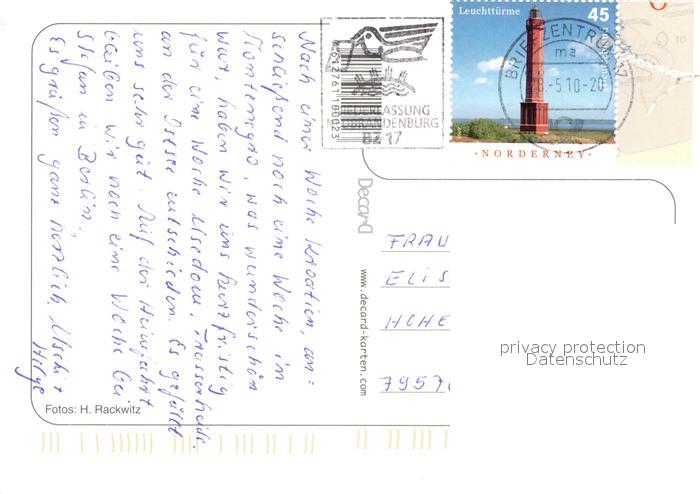 Nach einer Woche Kroatien, an=
schließend noch eine Woche in
Montenegro, was wunderschön
war, haben wir uns kurzfristig
für eine Woche Usedom, Trassenheide,
an der Ostsee entschieden. Es gefällt
uns sehr gut. Auf der Heimfahrt
bleiben wir noch eine Woche bei
Stefan in Berlin.
Es grüßen ganz herzlich, Uschi +
Helge
Fotos: H. Rackwitz
Decard
www.decard-karten.com
NIEDERLASSUNG
BRANDENBURG
BZ 17
Leuchttürme 45
NORDERNEY
BRIEFZENTRUM 17
ma
-5.10-20
FRAU
ELIS
7957
privacy protection
Datenschutz